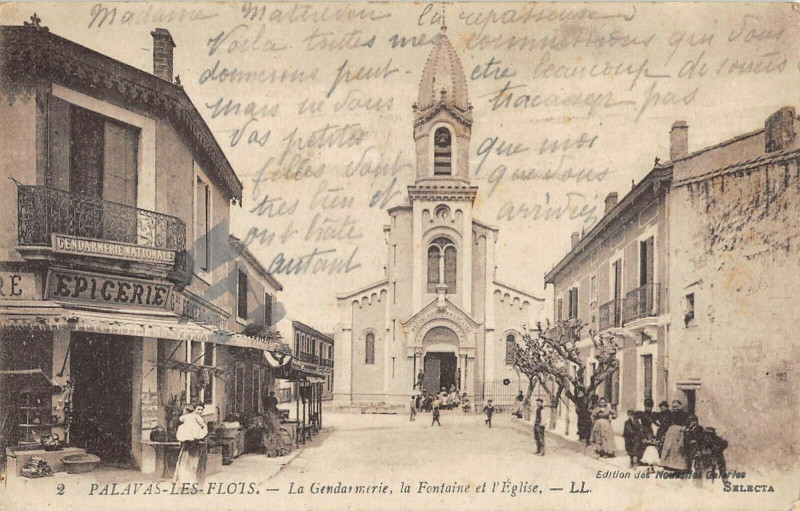 Madame la repasseuse
Voila toutes mes commissions qui vous
donnerons peut-etre beaucoup de soucis
mais ne vous tracasser pas
vos petites que moi
filles vont que vous
tres bien et arriviez
ont hâte
autant
GENDARMERIE NATIONALE
EPICERIE
2 PALAVAS-LES-FLOTS. — La Gendarmerie, la Fontaine et l'Église. — LL.
Edition des Nouvelles Galeries
SELECTA